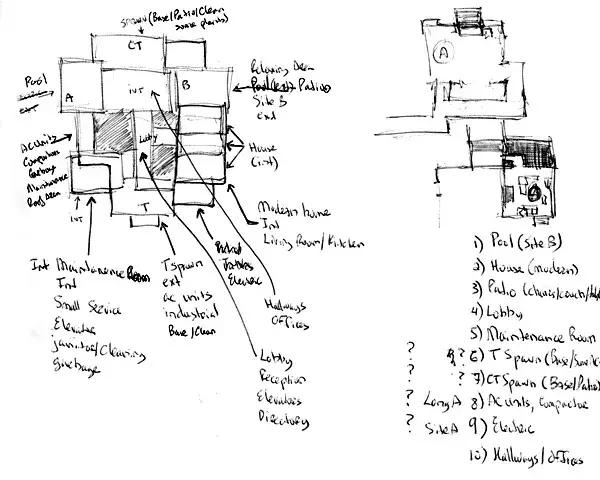 spawn (Base/Patio/Clean
some plants)
CT
Pool
A
INT
B
Relaxing Area
Pool (ext) Patio
Site B
Ext
AC Units
Compactor
Garbage
Maintenance
Lobby
House
(int)
INT
T
Modern home
Int
Living Room/Kitchen
Int Maintenance Room
Int
Small Service
Elevator
janitor/Cleaning
garbage
T spawn
ext
ac units
industrial
Base/Clean
Electric
Hallways
Offices
Lobby
Reception
Elevators
Directory
A
A
1) Pool (Site B)
2) House (modern)
3) Patio (chairs/couch/
4) Lobby
5) Maintenance Room
? ?? 6) T Spawn (Base/
? ? 7) CT Spawn (Base/Patio)
? Long A 8) AC units, Compactor
? Site A 9) Electric
10) Hallways/offices